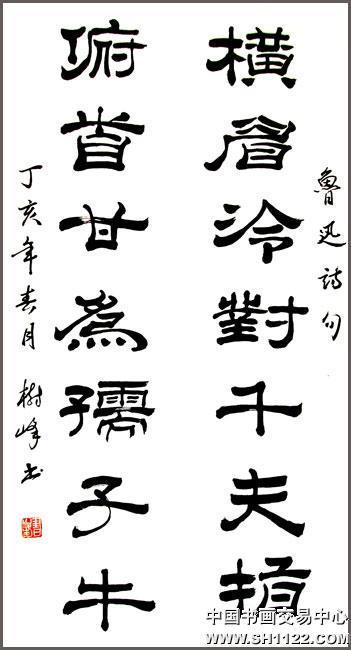 魯迅詩句
橫眉冷對千夫指
俯首甘為孺子牛
丁亥年春月 樹峰书
中国书画交易中心
WWW.SH1122.COM